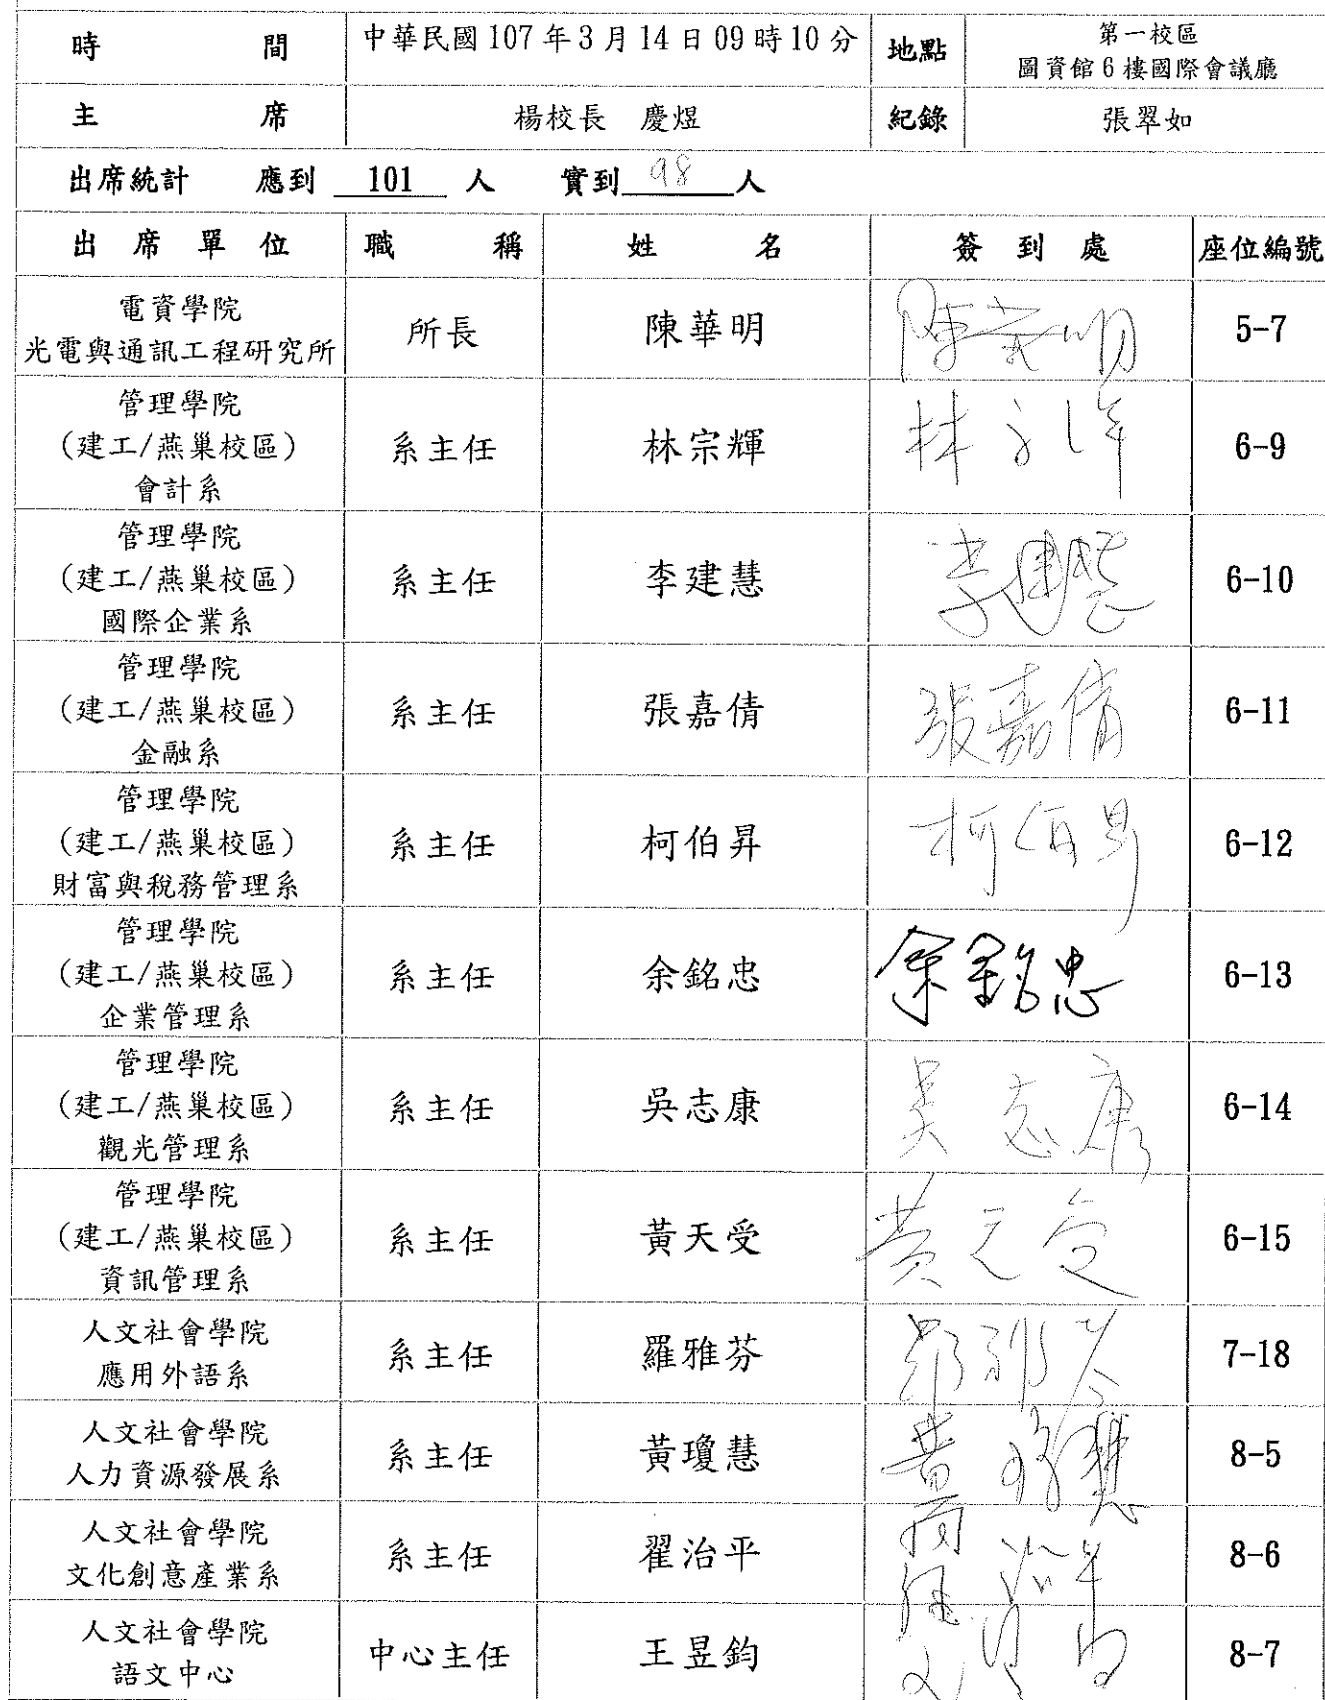 時 間 中華民國 107 年 3 月 14 日 09 時 10 分 地點 第一校區
圖資館 6 樓國際會議廳
主 席 楊校長 慶煜 紀錄 張翠如
出席統計 應到 101 人 實到 98 人
出 席 單 位 職 稱 姓 名 簽 到 處 座位編號
電資學院
光電與通訊工程研究所 所長 陳華明 陳華明 5-7
管理學院
(建工/燕巢校區) 系主任 林宗輝 6-9
會計系
管理學院
(建工/燕巢校區) 系主任 李建慧 李建慧 6-10
國際企業系
管理學院
(建工/燕巢校區) 系主任 張嘉倩 張嘉倩 6-11
金融系
管理學院
(建工/燕巢校區) 系主任 柯伯昇 柯伯昇 6-12
財富與稅務管理系
管理學院
(建工/燕巢校區) 系主任 余銘忠 余銘忠 6-13
企業管理系
管理學院
(建工/燕巢校區) 系主任 吳志康 吳志康 6-14
觀光管理系
管理學院
(建工/燕巢校區) 系主任 黃天受 黃天受 6-15
資訊管理系
人文社會學院
應用外語系 系主任 羅雅芬 7-18
人文社會學院
人力資源發展系 系主任 黃瓊慧 黃瓊慧 8-5
人文社會學院
文化創意產業系 系主任 翟治平 8-6
人文社會學院
語文中心 中心主任 王昱鈞 8-7